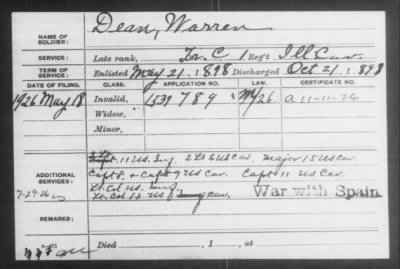 NAME OF SOLDIER: Dean, Warren
SERVICE: Late rank, Tr. C 1 Reg't Ill Cav.
TERM OF SERVICE: Enlisted May 21, 1898 Discharged Oct 21, 1898
DATE OF FILING. CLASS. APPLICATION NO. CERTIFICATE NO.
1926 May 18 Invalid, 1539789 A 11-11-26
Widow,
Minor,
ADDITIONAL SERVICES: 11 US. Inf. 2 Lt 6 US Cav. Major 15 US Cav.
Capt 8. & Capt 9 US Cav. Capt 11 US Cav.
7-29-26 Lt. Col US. Inf
Lt. Col 12 US Cav. War with Spain
REMARKS:
Died , 1 , at